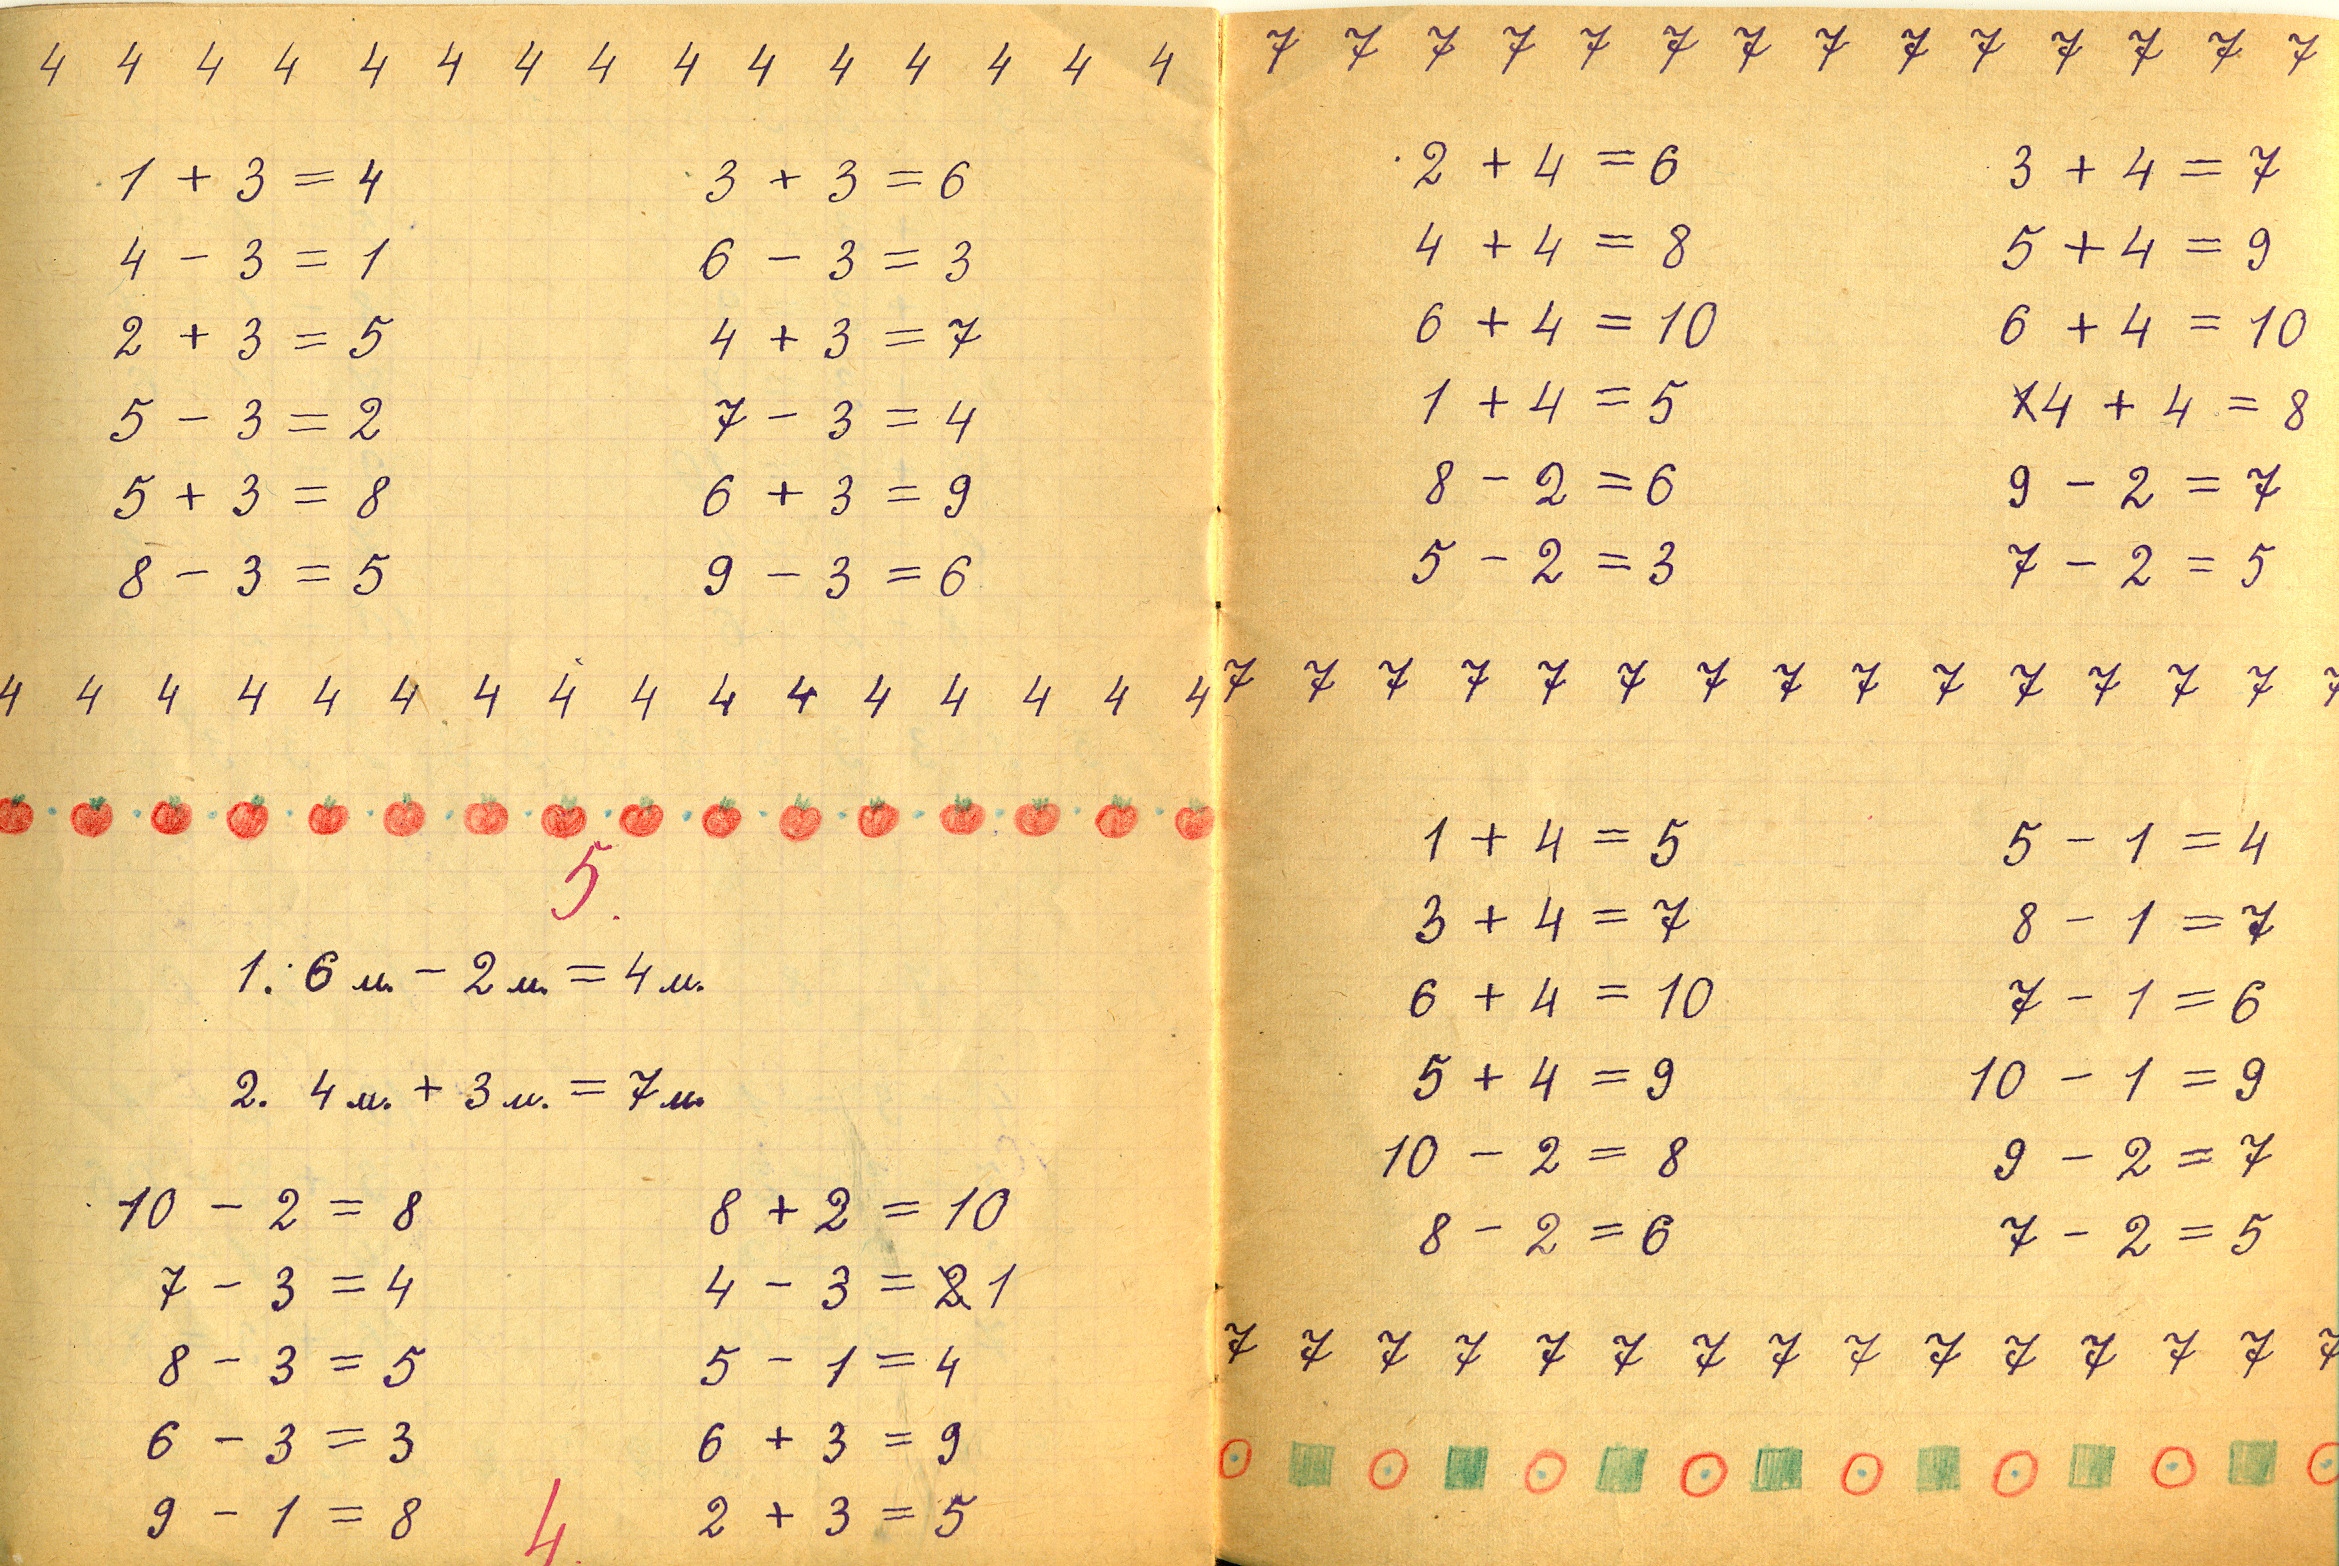 4 4 4 4 4 4 4 4 4 4 4 4 4 4 4
1 + 3 = 4 3 + 3 = 6
4 - 3 = 1 6 - 3 = 3
2 + 3 = 5 4 + 3 = 7
5 - 3 = 2 7 - 3 = 4
5 + 3 = 8 6 + 3 = 9
8 - 3 = 5 9 - 3 = 6
4 4 4 4 4 4 4 4 4 4 4 4 4 4 4 4
5.
1. 6 м. - 2 м. = 4 м.
2. 4 м. + 3 м. = 7 м.
10 - 2 = 8 8 + 2 = 10
7 - 3 = 4 4 - 3 = 2 1
8 - 3 = 5 5 - 1 = 4
6 - 3 = 3 6 + 3 = 9
9 - 1 = 8 2 + 3 = 5
4.
7 7 7 7 7 7 7 7 7 7 7 7 7 7
2 + 4 = 6 3 + 4 = 7
4 + 4 = 8 5 + 4 = 9
6 + 4 = 10 6 + 4 = 10
1 + 4 = 5 1 4 + 4 = 8
8 - 2 = 6 9 - 2 = 7
5 - 2 = 3 7 - 2 = 5
7 7 7 7 7 7 7 7 7 7 7 7 7 7 7
1 + 4 = 5 5 - 1 = 4
3 + 4 = 7 8 - 1 = 7
6 + 4 = 10 7 - 1 = 6
5 + 4 = 9 10 - 1 = 9
10 - 2 = 8 9 - 2 = 7
8 - 2 = 6 7 - 2 = 5
7 7 7 7 7 7 7 7 7 7 7 7 7 7 7